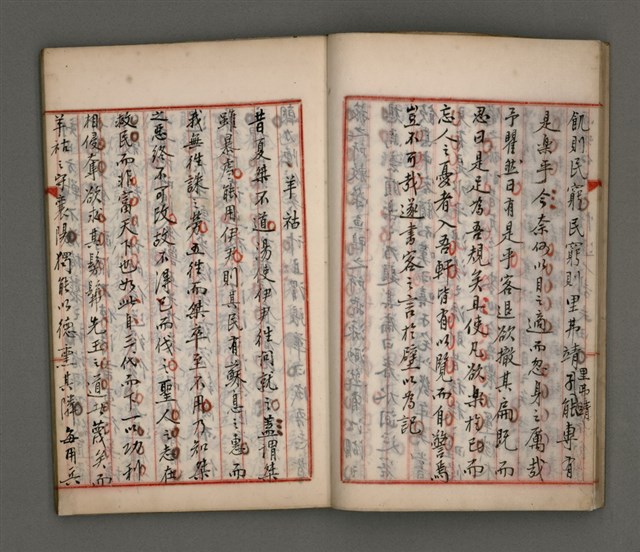 飢則民窮民窮則里弗靖里弗靖予能專有
是樂乎今奈何以目之適而忽身之厲哉
予瞿然曰有是乎客退欲撤其扁既而
思曰是足為吾規矣且使凡欲樂於己而
忘人之憂者入吾軒皆有以覽而自警焉
豈不可哉遂書客之言於壁以為記
羊祜
昔夏桀不道湯使伊尹往間就之蓋謂桀
雖暴虐能用伊尹則其民有蘇息之惠而
我無往誅之勞五往而桀卒至不用乃知桀
之惡終不可改故不得已而伐之聖人之志在
救民而非富天下也如此自三代而下一以功利
相侵奪欲求其髣髴先王之道蔑矣而
羊祜之守襄陽獨能以德惠其隣每用兵